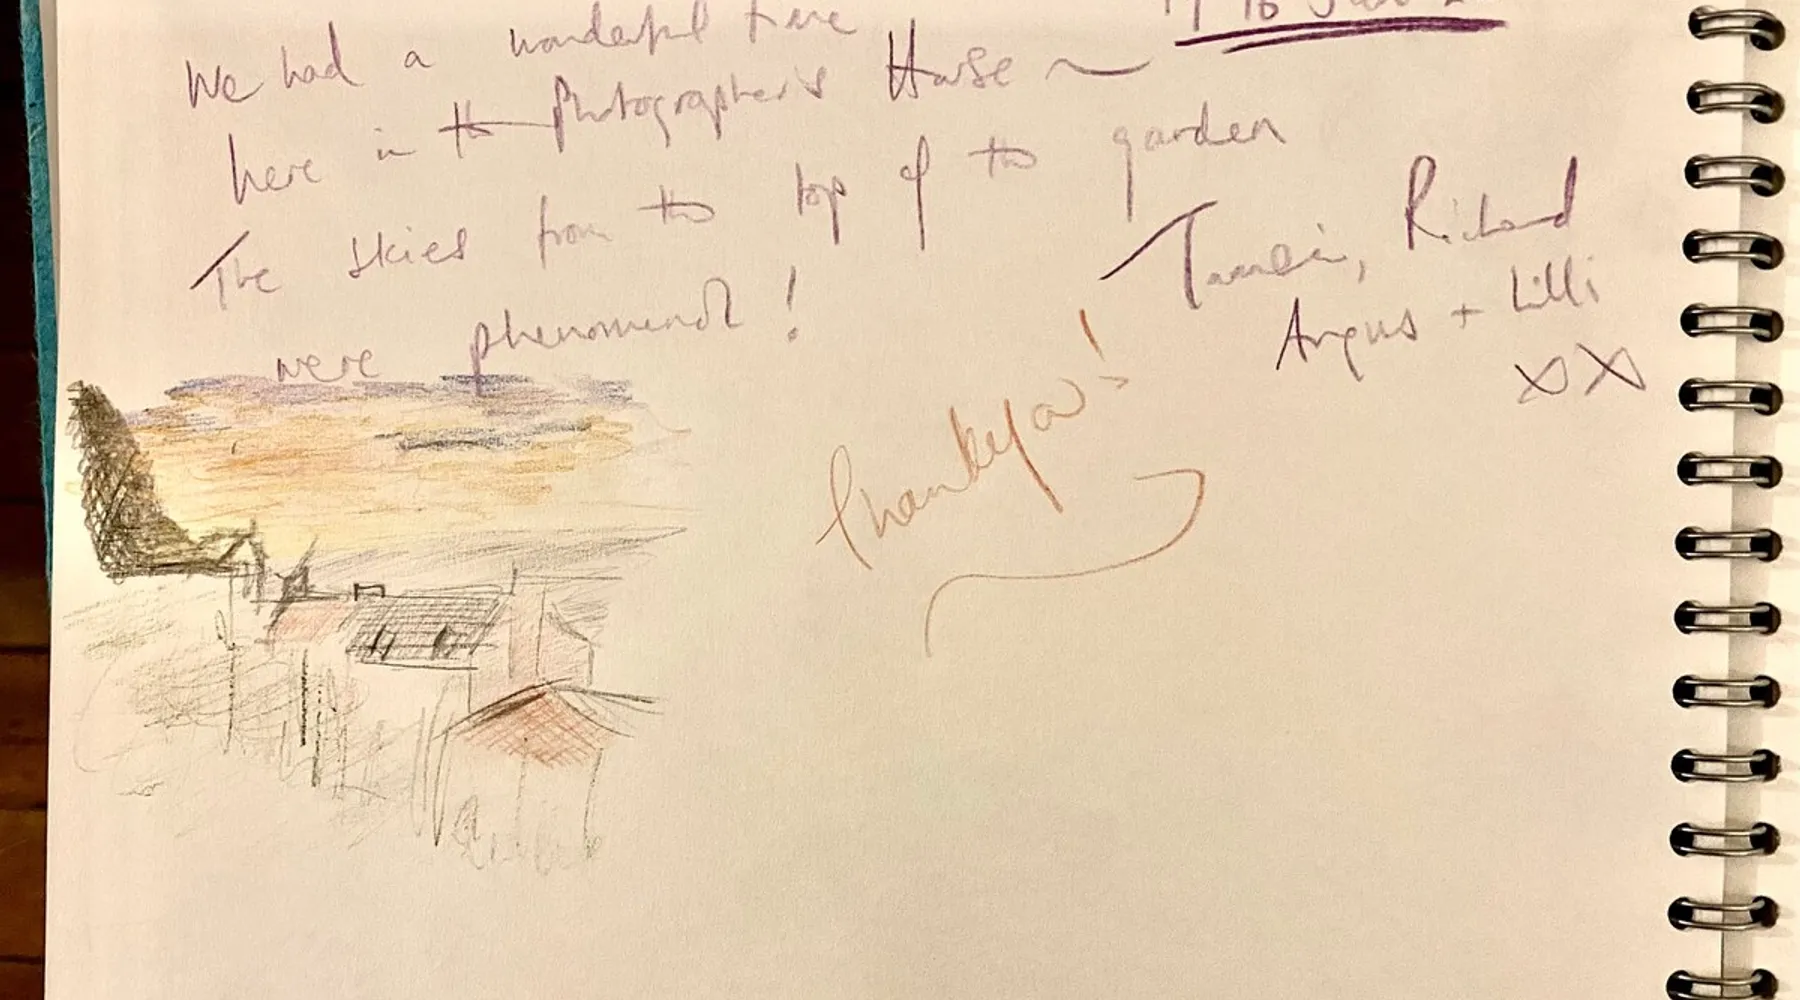 We had a wonderful time
here in the Photographer's House ~
The skies from the top of the garden
were phenomenal!
Tamsin, Richard
Angus + Lilli
xx
Thankyou!